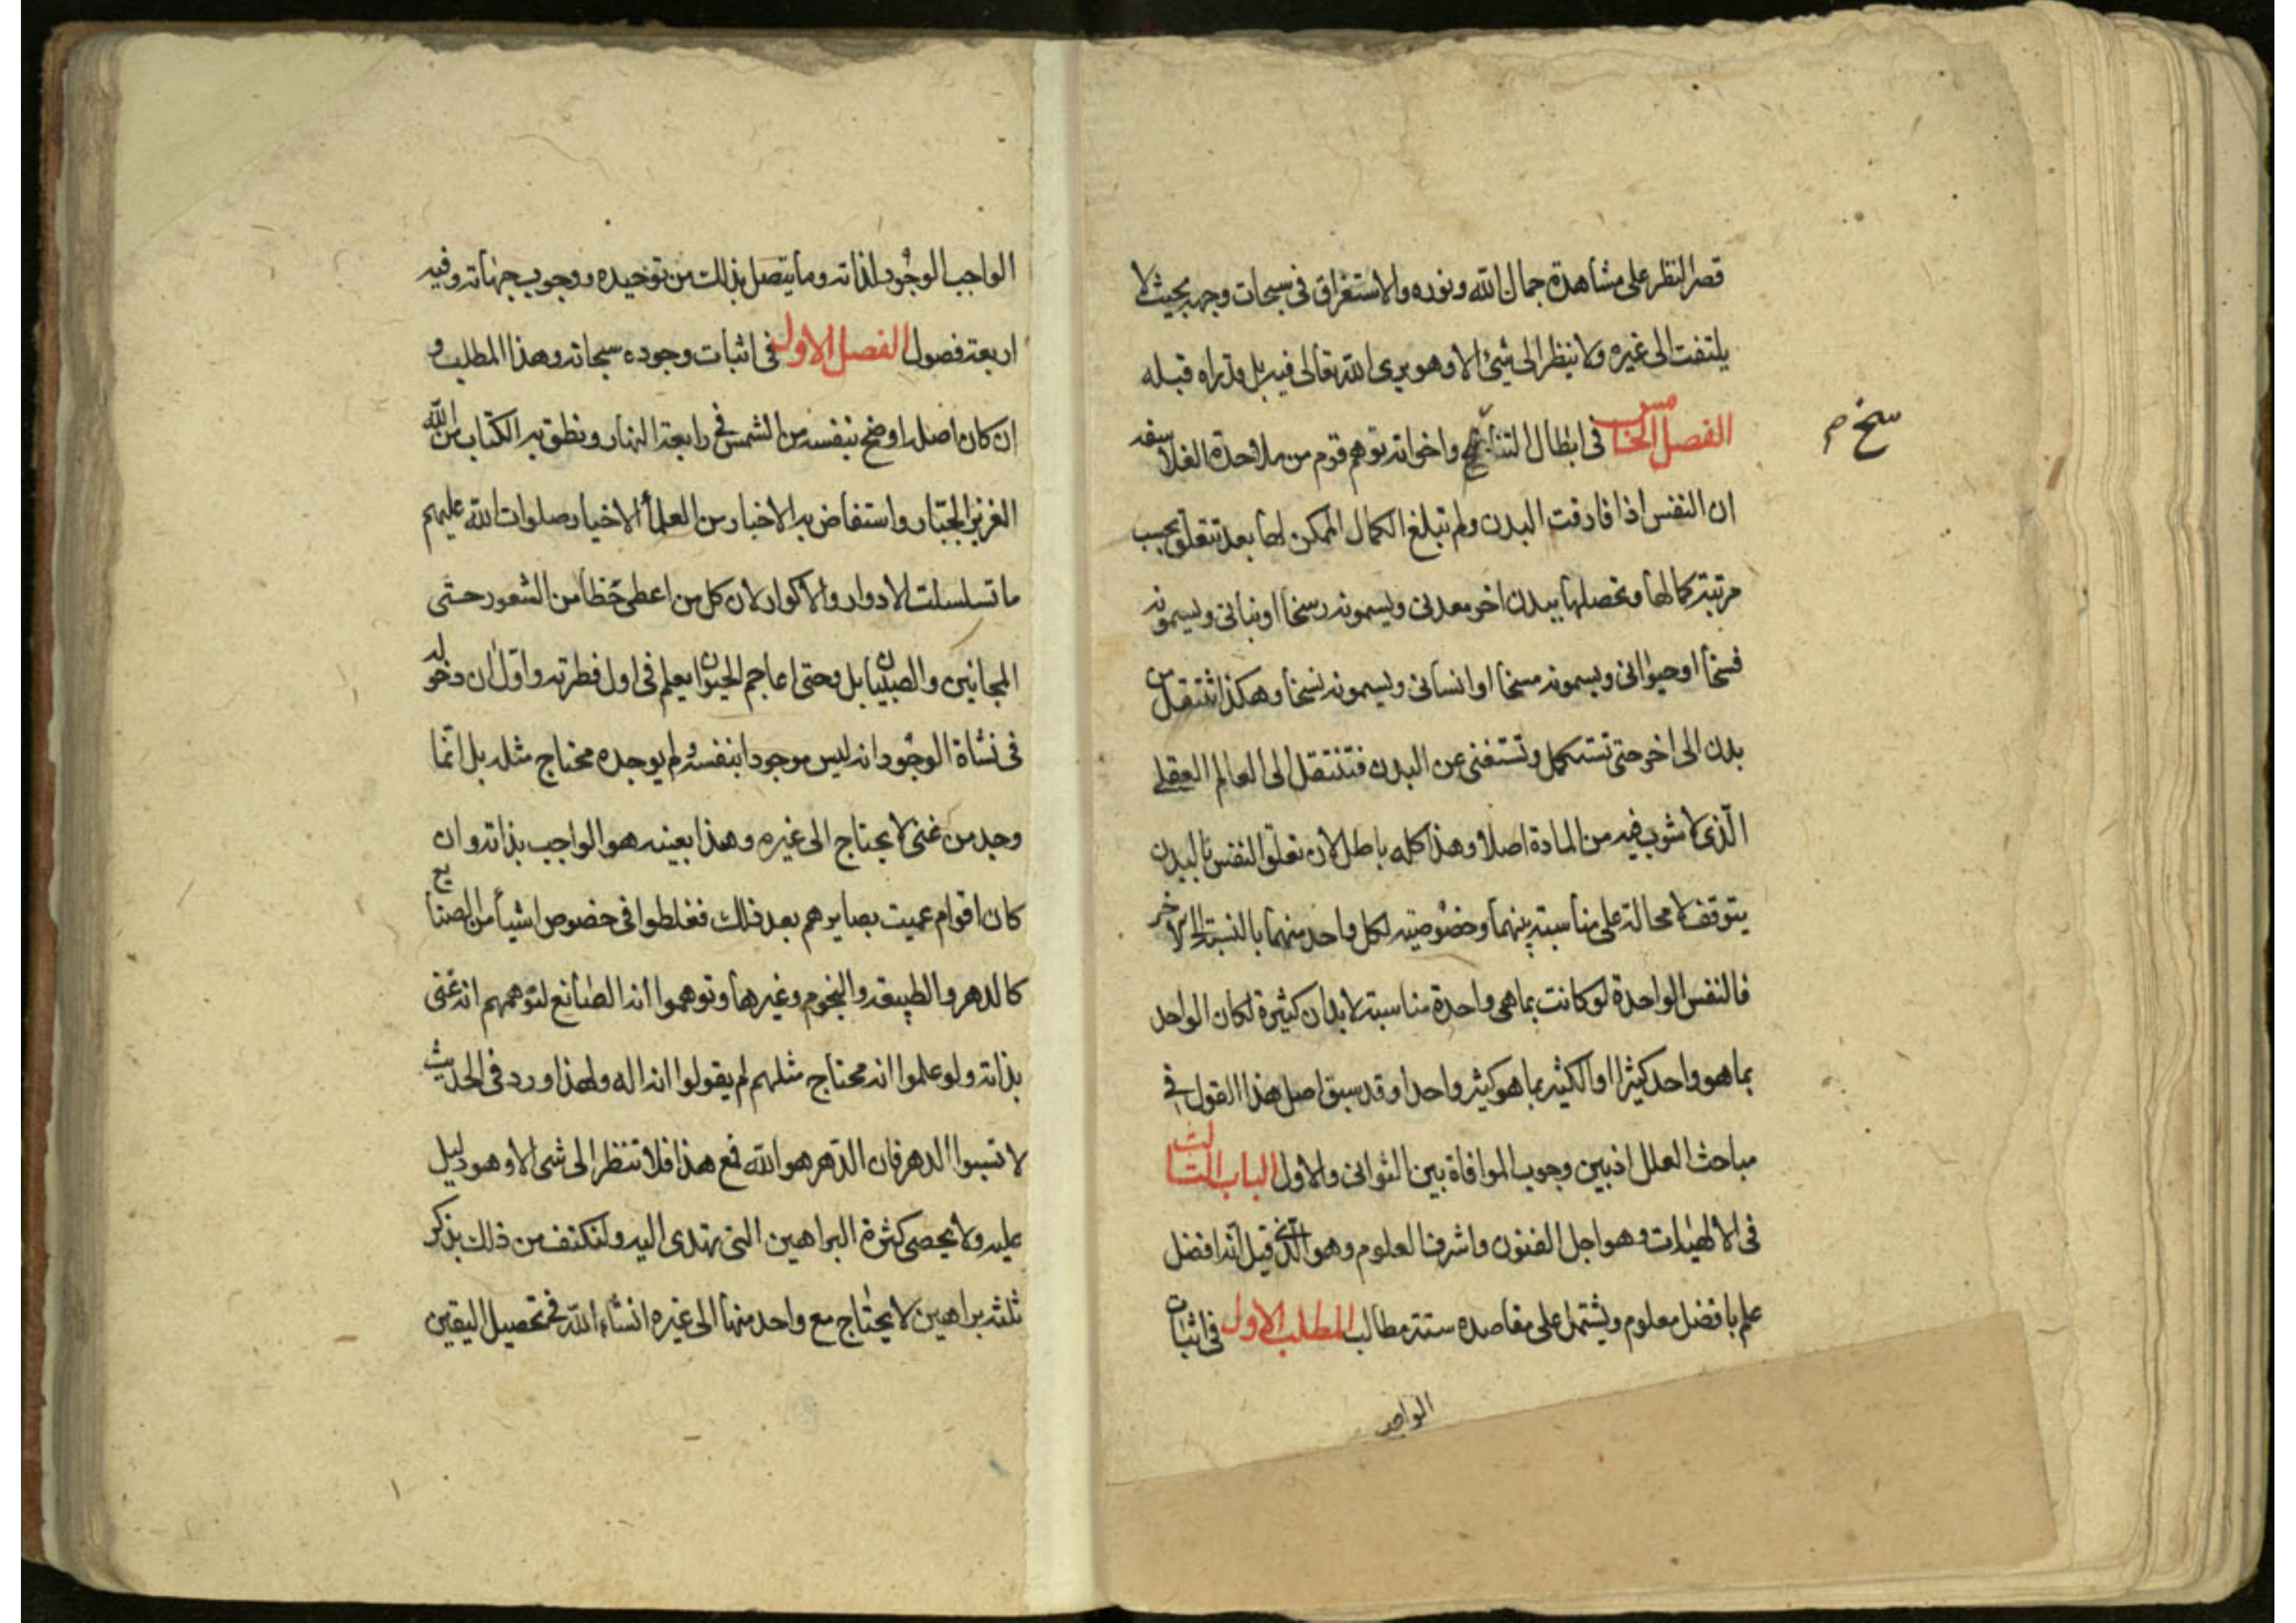 قصر النظر على مشاهدة جمال الله ونوره والاستغراق في سبحات وجهه بحيث لا
يلتفت الى غيره ولا ينظر الى شيئ الا وهو يرى الله تعالى فيه بل وتراه قبله
الفصل الخامس في ابطال التناسخ واخواته توهم قوم من ملاحدة الفلاسفه
سخ م
ان النفس اذا فارقت البدن ولم تبلغ الكمال الممكن لها بعد تتعلق بحسب
مرتبة كمالها وتحصلها ببدن اخر معدنى ويسمونه رسخا او نباتى ويسمونه
فسخا او حيوانى ويسمونه مسخا او انسانى ويسمونه نسخا وهكذا تنتقل من
بدن الى اخر حتى تستكمل وتستغنى عن البدن فتنتقل الى العالم العقلى
الّذى لا شوب فيه من المادة اصلا وهذا كله باطل لان تعلق النفس بالبدن
يتوقف لا محالة على مناسبة بينهما وخصوصية لكل واحد منهما بالنسبة الى الاخر
فالنفس الواحدة لو كانت بما هى واحدة مناسبة لابدان كثيرة لكان الواحد
بما هو واحد كثيرا او الكثير بما هو كثير واحدا وقد سبق اصل هذا القول في
مباحث العلل اذ بين وجوب الموافاة بين الثوانى والاول الباب الثالث
فى الالهيات وهو اجل الفنون واشرف العلوم وهو الذى قيل انه افضل
علم بافضل معلوم ويشتمل على مقاصده ستة مطالب المطلب الاول فى اثبات
الواجب
الواجب الوجود لذاته وما يتصل بذلك من توحيده ووجوب جهاته وفيه
اربعة فصول الفصل الاول فى اثبات وجوده سبحانه وهذا المطلب و
ان كان اصله اوضح بنفسه من الشمس فى رابعة النهار ونطق به الكتاب من الله
العزيز الجبار واستفاض به الاخبار من العلمأ الاخيار صلوات الله عليهم
ما تسلسلت الادوار والاكوار لان كل من اعطى حظا من الشعور حتى
المجانين والصبيان بل وحتى اعاجم الحيوان يعلم فى اول فطرته واوّل ان دخوله
فى نشاة الوجود انه ليس موجودا بنفسه ولم يوجده محتاج مثله بل انّما
وجد من غنى لا يحتاج الى غيره وهذا بعينه هو الواجب بذاته وان
كان اقوام عميت بصايرهم بعد ذلك فغلطوا فى خصوص اشيأ من الصنايع
كالدهر والطبيعه والنجوم وغيرها وتوهموا انه الصانع لتوهمهم انه غنى
بذاته ولو علموا انه محتاج مثلهم لم يقولوا انه اله ولهذا ورد فى الحديث
لا تسبوا الدهر فان الدّهر هو الله فمع هذا فلا تنظر الى شى الا وهو دليل
عليه ولا يحصى كثرة البراهين التى تهتدى اليه ولنكتف من ذلك بذكر
ثلثه براهين لا يحتاج مع واحد منها الى غيره انشاء الله فى تحصيل اليقين